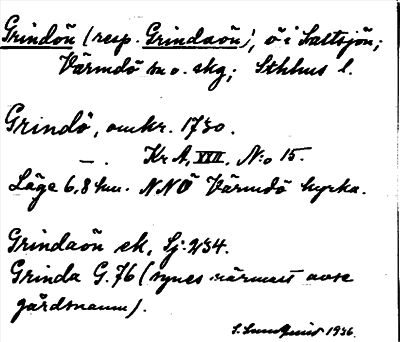 Grindön (resp. Grindaön), ö i Saltsjön;
Värmdö sn o. skg; Sthlms l.
Grindö, omkr. 1730.
— . Kr A, XVII, N:o 15.
Läge 6,8 km. NNÖ Värmdö kyrka.
Grindaön ek, Sj: 234.
Grinda G. 76 (synes närmast avse
gårdsnamn).
S. 1936.